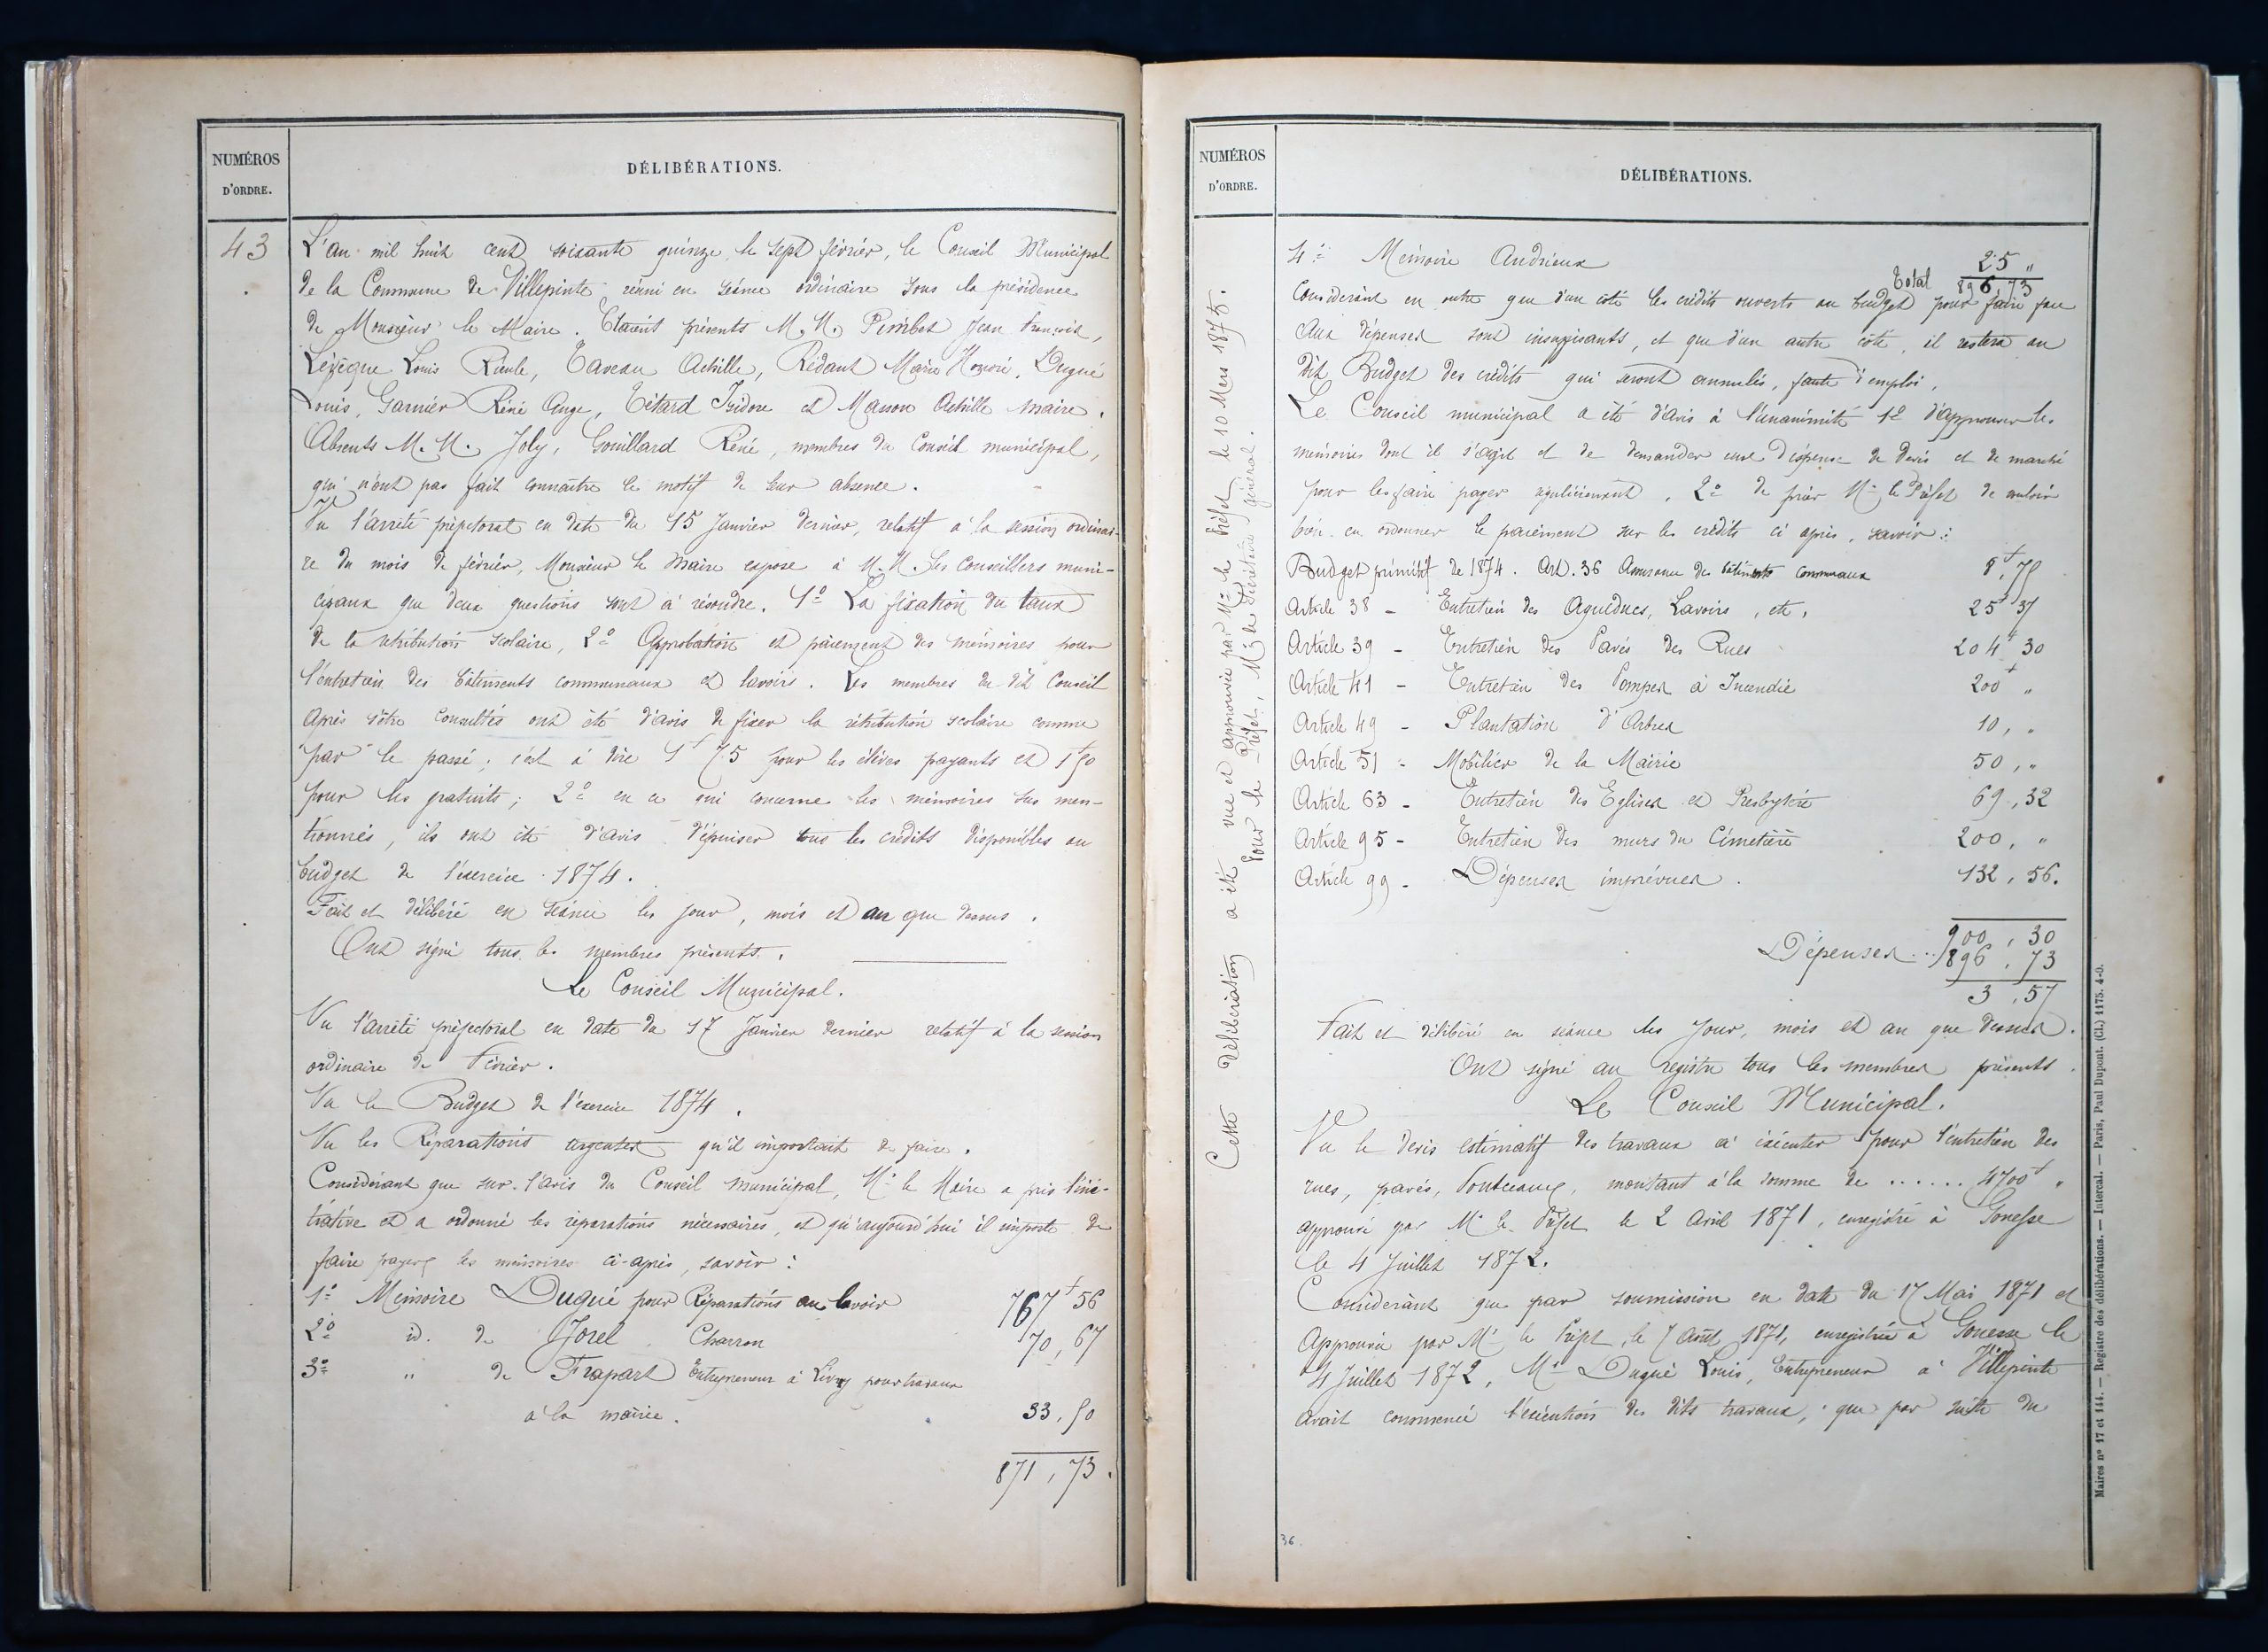 NUMÉROS
D'ORDRE.
DÉLIBÉRATIONS.
43
L'an mil huit cent soixante quinze le sept février, le Conseil Municipal
de la Commune de Villepinte réuni en séance ordinaire sous la présidence
de Monsieur le Maire. Etaient présents M. M. Pimbet Jean François,
Levêque Louis Rieule, Caveau Achille, Rédaut Marie Honoré, Dugué
Louis, Garnier Réné Ange, Tétard Isidore et Manon Achille maire.
Absents M. M. Joly, Gouillard Réné, membres du Conseil municipal,
qui n'ont pas fait connaître le motif de leur absence.
Vu l'arrêté préfectoral en date du 15 Janvier dernier, relatif à la session ordinai-
re du mois de février, Monsieur le Maire expose à M. M. les Conseillers muni-
cipaux que deux questions sont à résoudre. 1º La fixation du taux
de la rétribution scolaire, 2º Approbation et paiement des mémoires pour
l'entretien des bâtiments communaux et lavoirs. Les membres du dit Conseil
après s'être consultés ont été d'avis de fixer la rétribution scolaire comme
par le passé; c'est à dire 1f 75 pour les élèves payants et 1f 50
pour les gratuits; 2º en ce qui concerne les mémoires sus men-
tionnés, ils ont été d'avis d'épuiser tous les crédits disponibles au
budget de l'exercice 1874.
Fait et délibéré en séance les jour, mois et an que dessus.
Ont signé tous les membres présents.
Le Conseil Municipal.
Vu l'arrêté préfectoral en date du 17 Janvier dernier relatif à la session
ordinaire de Février.
Vu le Budget de l'exercice 1874.
Vu les Réparations urgentes qu'il importait de faire.
Considérant que sur l'avis du Conseil municipal, Mr le Maire a pris l'ini-
tiative et a ordonné les réparations nécessaires, et qu'aujourd'hui il importe de
faire payer les mémoires ci-après, savoir:
1º Mémoire Dugué pour Réparations au lavoir 767f 56
2º id. de Jorel Charron 70, 67
3º " de Frapart Entrepreneur à Livry pour travaux
à la mairie. 33, 50
871, 73.
NUMÉROS
D'ORDRE.
DÉLIBÉRATIONS.
Cette délibération a été vue et approuvée par Mr le Préfet le 10 Mars 1875.
Pour le Préfet, Mr le Secrétaire général.
4º Mémoire Andrieux 25 "
Total 896, 73
Considérant en outre que d'un côté les crédits ouverts au budget pour faire face
aux dépenses sont insuffisants, et que d'un autre côté, il restera au
dit Budget des crédits qui seront annulés, faute d'emploi.
Le Conseil municipal a été d'avis à l'unanimité 1º d'approuver les
mémoires dont il s'agit et de demander une dispense de devis et de marché
pour les faire payer régulièrement, 2º de prier Mr le Préfet de vouloir
bien en ordonner le paiement sur les crédits ci après, savoir:
Budget primitif de 1874. Art. 36 Assurance des bâtiments communaux 8f, 75
Article 38 - Entretien des Aqueducs, Lavoirs, etc. 25f 37
Article 39 - Entretien des Pavés des Rues 204f 30
Article 41 - Entretien des Pompes à Incendie 200f "
Article 49 - Plantation d'Arbres 10, "
Article 51 - Mobilier de la Mairie 50, "
Article 63 - Entretien des Eglises et Presbytère 69, 32
Article 95 - Entretien des murs du Cimetière 200, "
Article 99 - Dépenses imprévues. 132, 56.
900, 30
Dépenses... 896, 73
3, 57
Fait et délibéré en séance les Jour, mois et an que dessus.
Ont signé au registre tous les membres présents.
Le Conseil Municipal.
Vu le devis estimatif des travaux à exécuter pour l'entretien des
rues, pavés, Ponteaux, montant à la somme de ...... 4700f "
approuvé par Mr le Préfet le 2 Avril 1871, enregistré à Gonesse
le 4 Juillet 1872.
Considérant que par soumission en date du 17 Mai 1871 et
approuvée par Mr le Préfet le 7 Août 1871, enregistrée à Gonesse le
4 Juillet 1872, Mr Dugué Louis, Entrepreneur à Villepinte
avait commencé l'exécution des dits travaux, que par suite du
36
Maires nº 17 et 144. — Registre des délibérations. — Intercal. — Paris, Paul Dupont. (Cl.) 1175. 4-0.